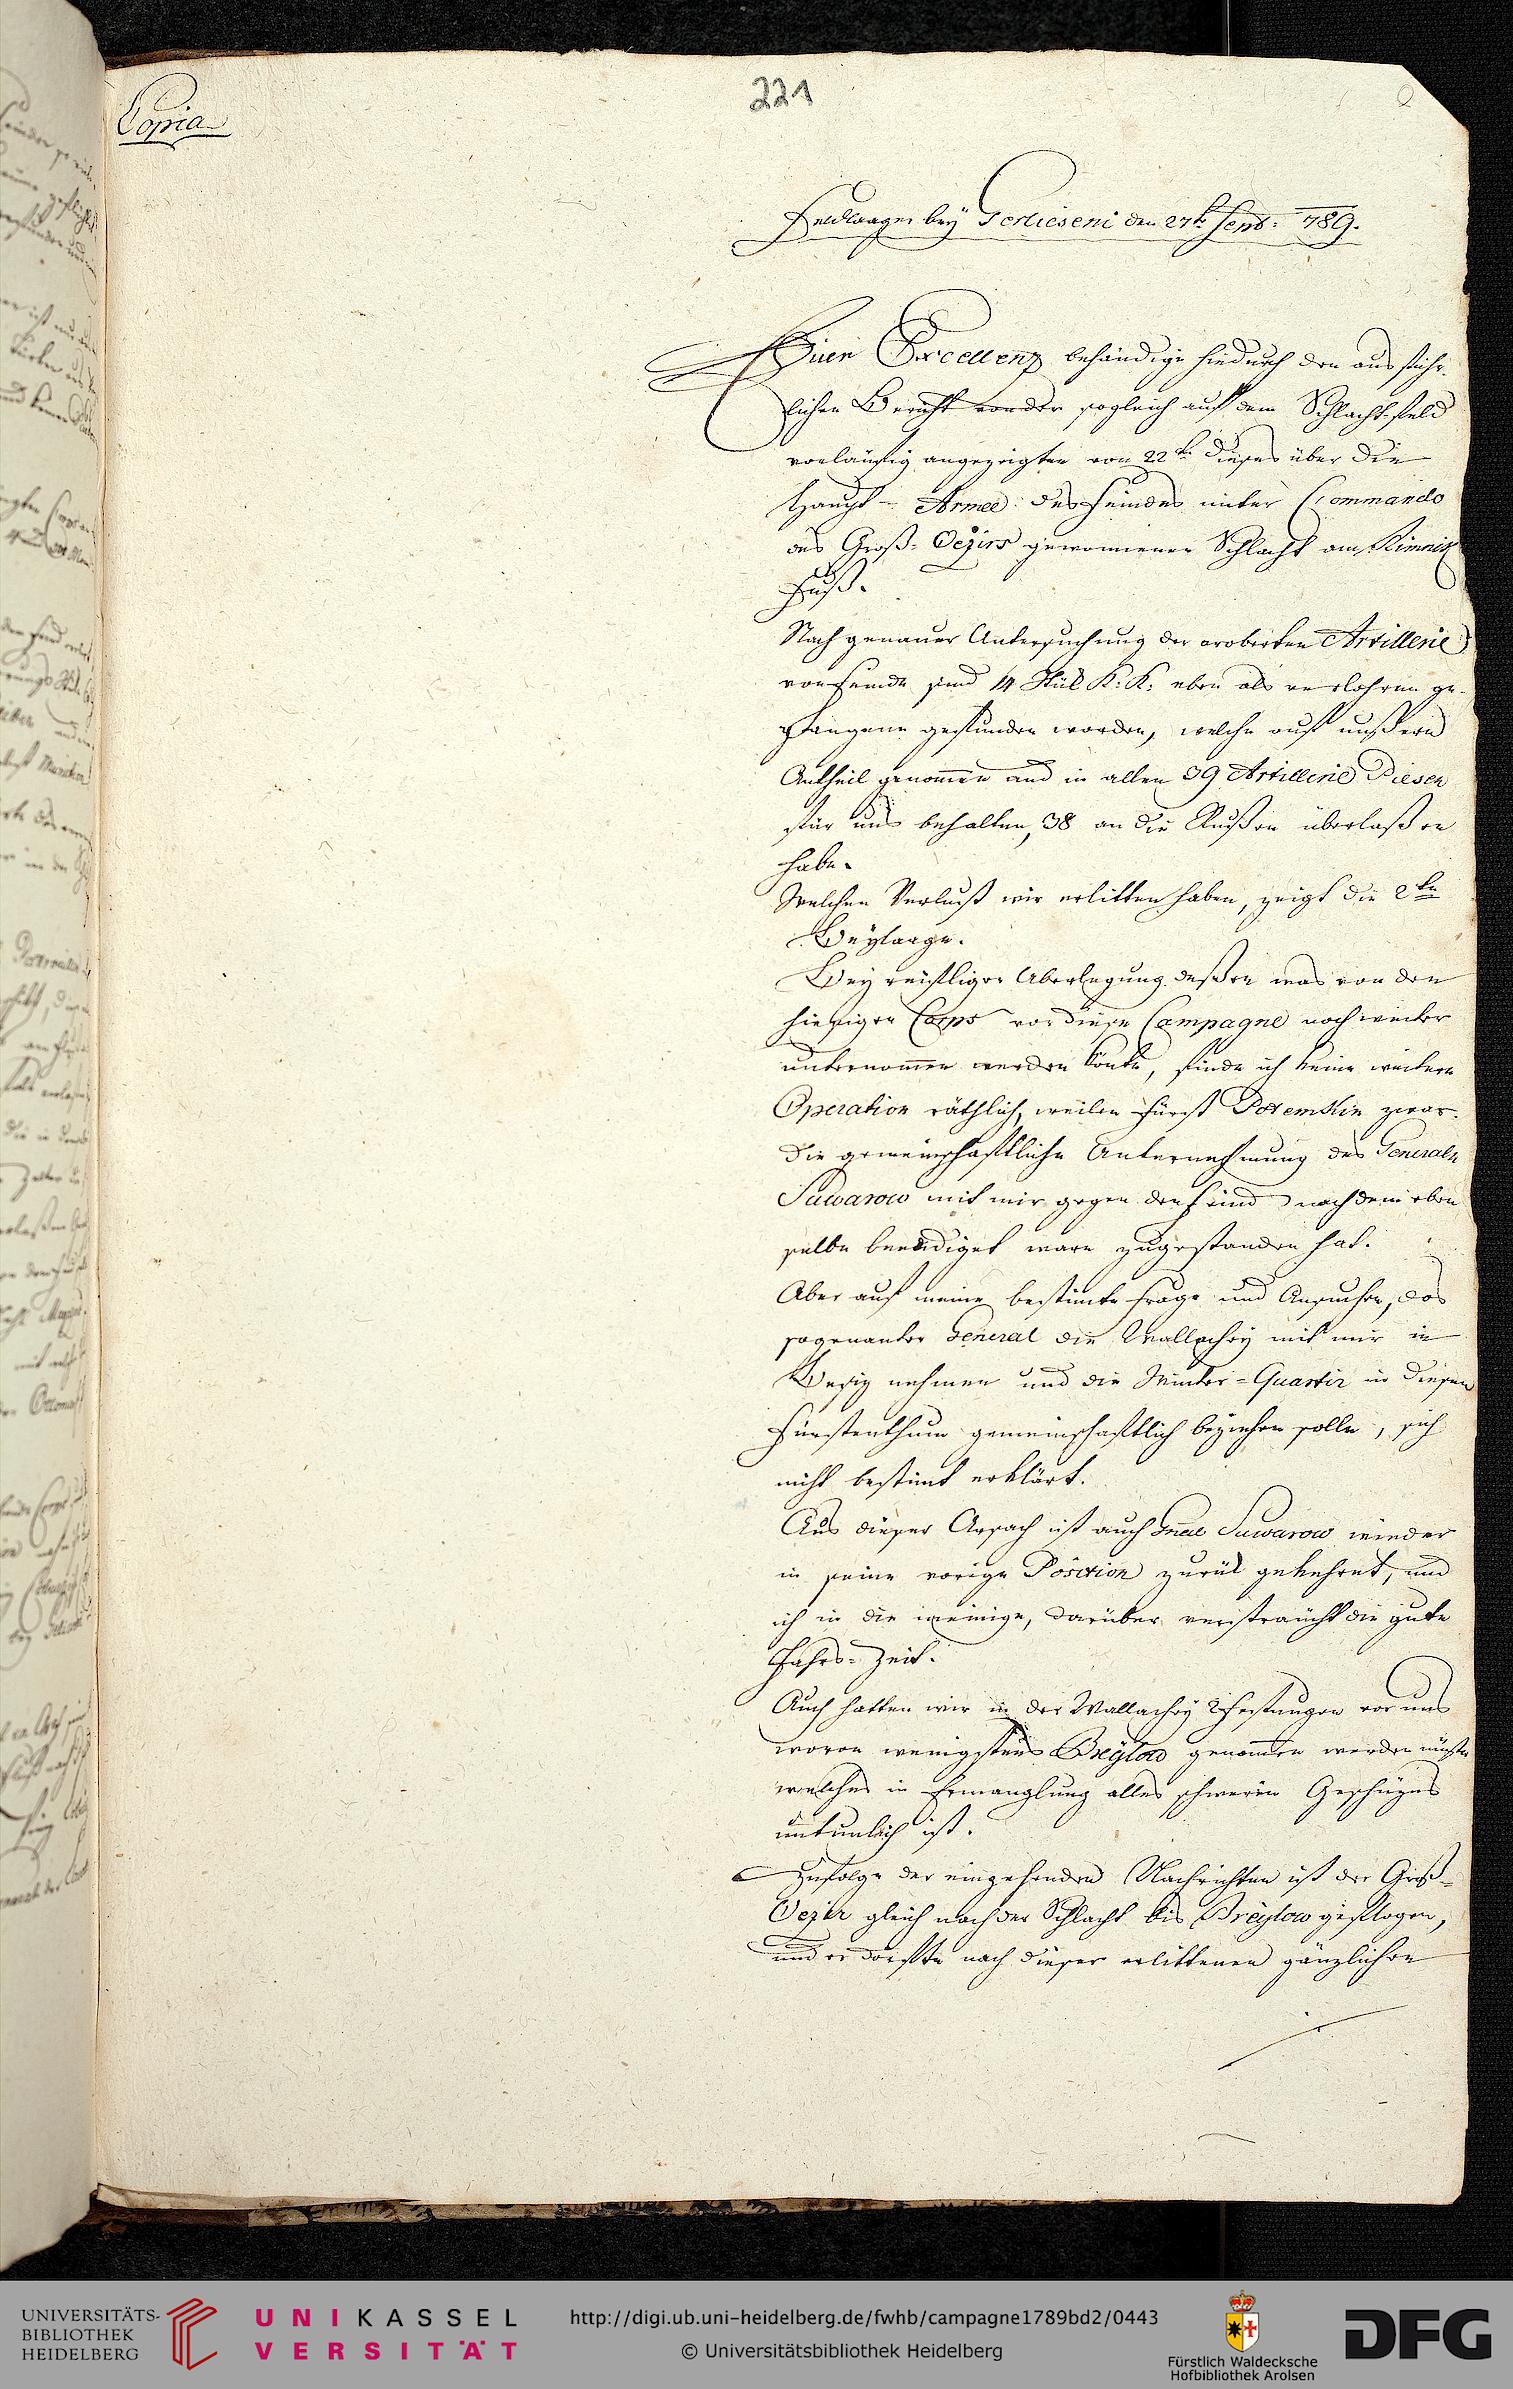 221
Copia
Feldlaager beÿ Terlieseni den 27t Sept: 789.
Euer Excellenz behändige hiedurch den ausführ-
lichen Bericht von der sogleich auf dem Schlacht-feld
vorläufig angezeigten von 22t dieses über die
Haupt-Armee des Feindes unter Commando
des Groß-Vezirs gewonnener Schlacht am Rimnik
Fluß.
Nach genauer Untersuchung der eroberten Artillerie
von Feinde sind 14 Stük K: K: eben als verlohren ge-
gangene gefunden worden, welche auf unsern
Antheil genommen und in allen 39 Artillerie Piesen
für uns behalten, 38 an die Rußen überlaßen
habe.
Welchen Verlust wir erlitten haben, zeigt die 2te
Beÿlaage.
Beÿ reiflicher Uberlegung deßen was von den
hiesigen Corps vor diese Campagne noch weiter
unternommen werden könte, finde ich keine weitere
Operation räthlich, weilen Fürst Potemkin zwar
die gemeinschaftliche Unternehmung des Generals
Suwarow mit mir gegen den Feind nachdem eben
selbe beendiget ware zugestanden hat.
Aber auf meine bestimte Frage und Ansuchen, das
sogenanter General die Wallacheÿ mit mir in
Besiz nehmen und die Winter-Quartir in diesem
Fürstenthum gemeinschaftlich beziehen solle, sich
nicht bestimt erklärt.
Aus dieser Ursach ist auch Gnral Suwarow wieder
in seine vorige Position zurük gekehret, und
ich in die meinige, darüber verstraicht die gute
Jahrs-Zeit.
Auch hatten wir in der Wallacheÿ 2 Festungen vor uns
wovon wenigstens Breÿlow genommen werden müste
welches in Ermanglung alles schweren Geschüzes
untunlich ist.
Zufolge der eingehenden Nachrichten ist der Groß-
Vezir gleich nach der Schlacht bis Breÿlow geflogen,
und er dorfte nach dieser erlittenen gänzlichen
UNIVERSITÄTS-
BIBLIOTHEK
HEIDELBERG
UNIKASSEL
VERSITÄT
http://digi.ub.uni-heidelberg.de/fwhb/campagne1789bd2/0443
© Universitätsbibliothek Heidelberg
Fürstlich Waldecksche
Hofbibliothek Arolsen
DFG